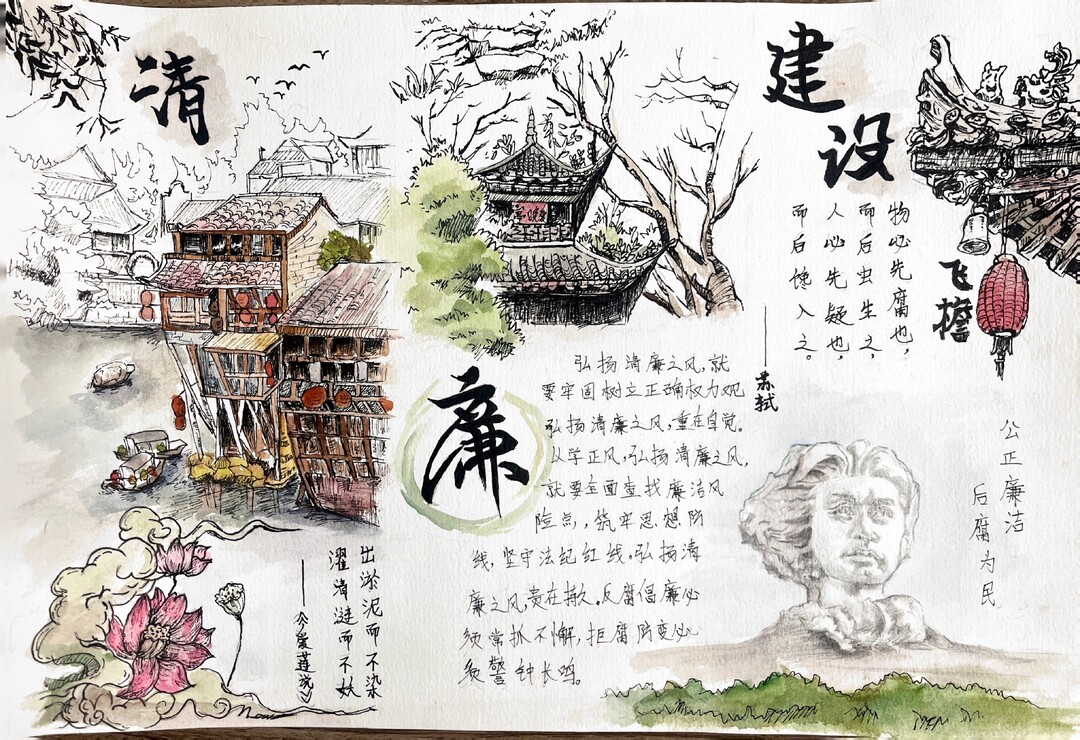 清
廉
建
设
飞
檐
物必先腐也，
而后虫生之，
人必先疑也，
而后馋入之。
——苏轼
弘扬清廉之风，就
要牢固树立正确权力观
弘扬清廉之风，重在自觉。
从学正风，弘扬清廉之风，
就要全面查找廉洁风
险点，筑牢思想防
线，坚守法纪红线。弘扬清
廉之风，贵在持久。反腐倡廉必
须常抓不懈，拒腐防变必
须警钟长鸣。
公正廉洁
后腐为民
出淤泥而不染
濯清涟而不妖
——《爱莲说》